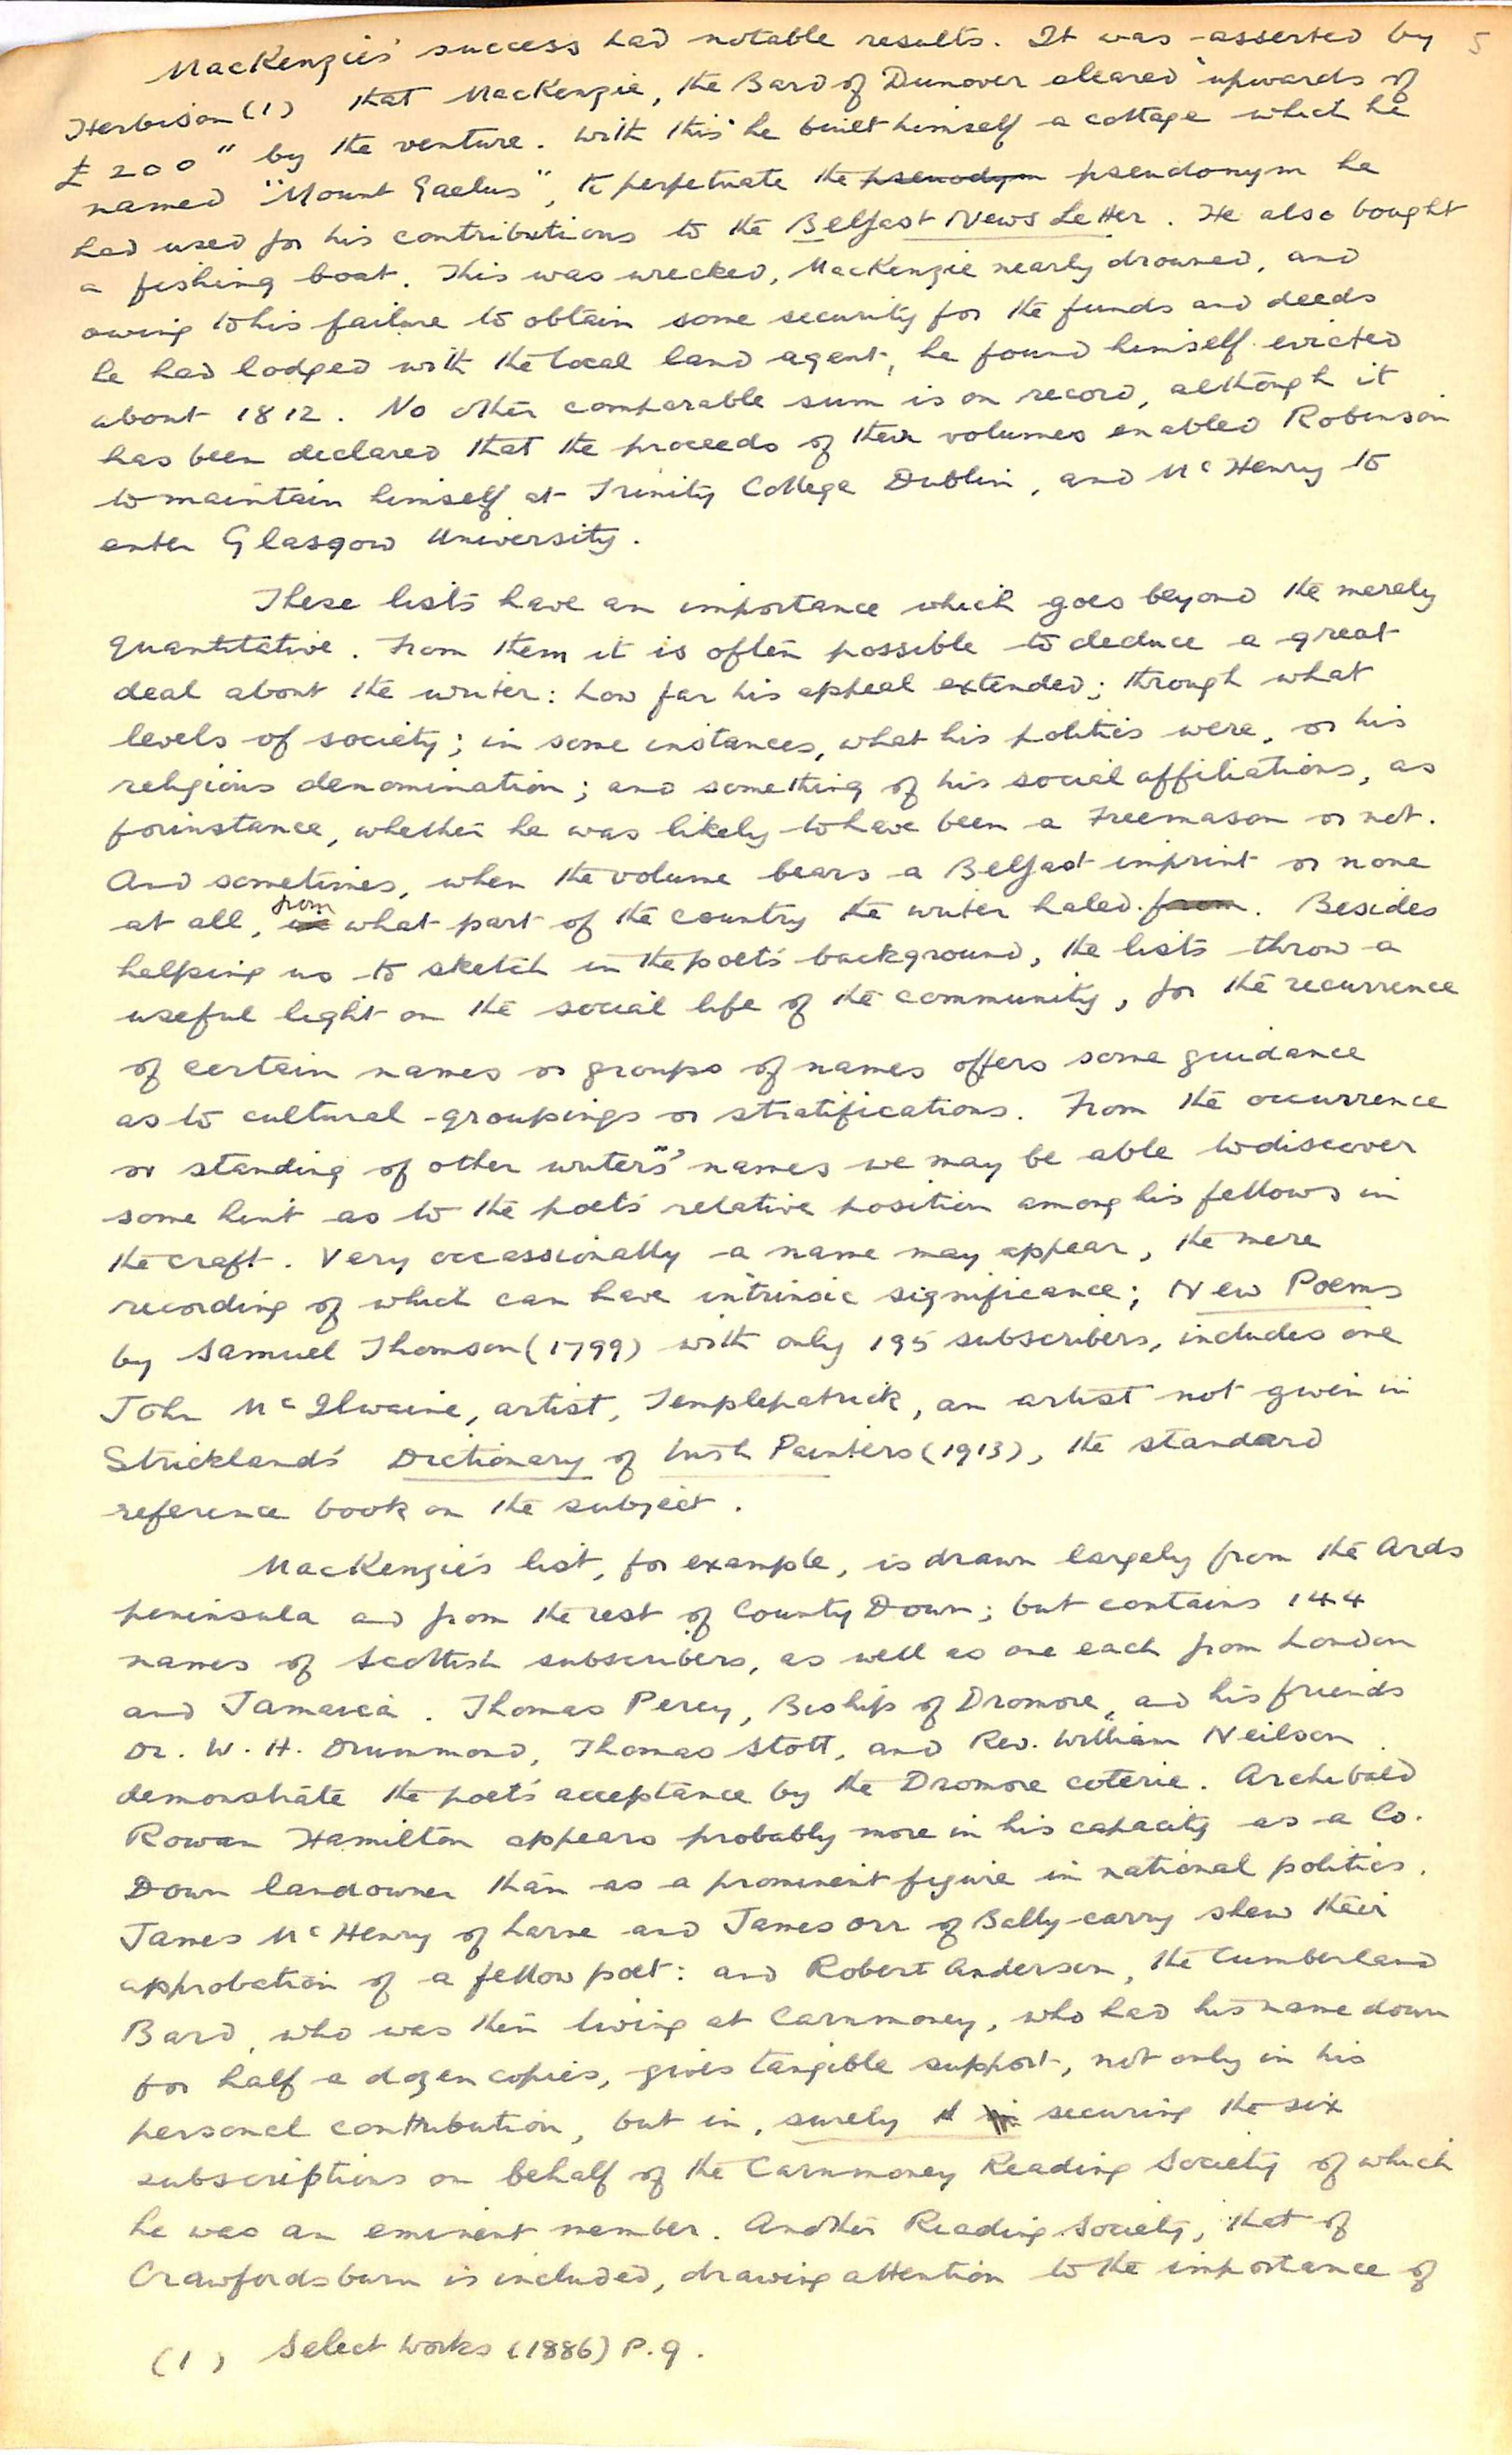 5
MacKenzie's success had notable results. It was asserted by
Herbison (1) that MacKenzie, the Bard of Dunover cleared "upwards of
£200" by the venture. With this he built himself a cottage which he
named "Mount Gaelus", to perpetuate the psenodym pseudonym he
had used for his contributions to the Belfast News Letter. He also bought
a fishing boat. This was wrecked, MacKenzie nearly drowned, and
owing to his failure to obtain some security for the funds and deeds
he had lodged with the local land agent, he found himself evicted
about 1812. No other comparable sum is on record, although it
has been declared that the proceeds of their volumes enabled Robinson
to maintain himself at Trinity College Dublin, and McHenry to
enter Glasgow University.
These lists have an importance which goes beyond the merely
quantitative. From them it is often possible to deduce a great
deal about the writer: how far his appeal extended; through what
levels of society; in some instances, what his politics were, or his
religious denomination; and something of his social affiliations, as
for instance, whether he was likely to have been a Freemason or not.
And sometimes, when the volume bears a Belfast imprint or none
at all, from what part of the country the writer haled from. Besides
helping us to sketch in the poet's background, the lists throw a
useful light on the social life of the community, for the recurrence
of certain names or groups of names offers some guidance
as to cultural groupings or stratifications. From the occurrence
or standing of other writers' names we may be able to discover
some hint as to the poet's relative position among his fellows in
the craft. Very occassionally a name may appear, the mere
recording of which can have intrinsic significance; New Poems
by Samuel Thomson (1799) with only 195 subscribers, includes one
John McIlwaine, artist, Templepatrick, an artist not given in
Strickland's Dictionary of Irish Painters (1913), the standard
reference book on the subject.
MacKenzie's list, for example, is drawn largely from the Ards
peninsula and from the rest of County Down; but contains 144
names of Scottish subscribers, as well as one each from London
and Jamaica. Thomas Percy, Biship of Dromore, and his friends
Dr. W. H. Drummond, Thomas Stott, and Rev. William Neilson
demonstrate the poet's acceptance by the Dromore coterie. Archibald
Rowan Hamilton appears probably more in his capacity as a Co.
Down landowner than as a prominent figure in national politics.
James McHenry of Larne and James Orr of Bally-carry shew their
approbation of a fellow poet: and Robert Anderson, the Cumberland
Bard, who was then living at Carnmoney, who had his name down
for half a dozen copies, gives tangible support, not only in his
personal contribution, but in, surely securing the six
subscriptions on behalf of the Carnmoney Reading Society of which
he was an eminent member. Another Reading Society, that of
Crawfordsburn is included, drawing attention to the importance of
(1) Select Works (1886) P. 9.